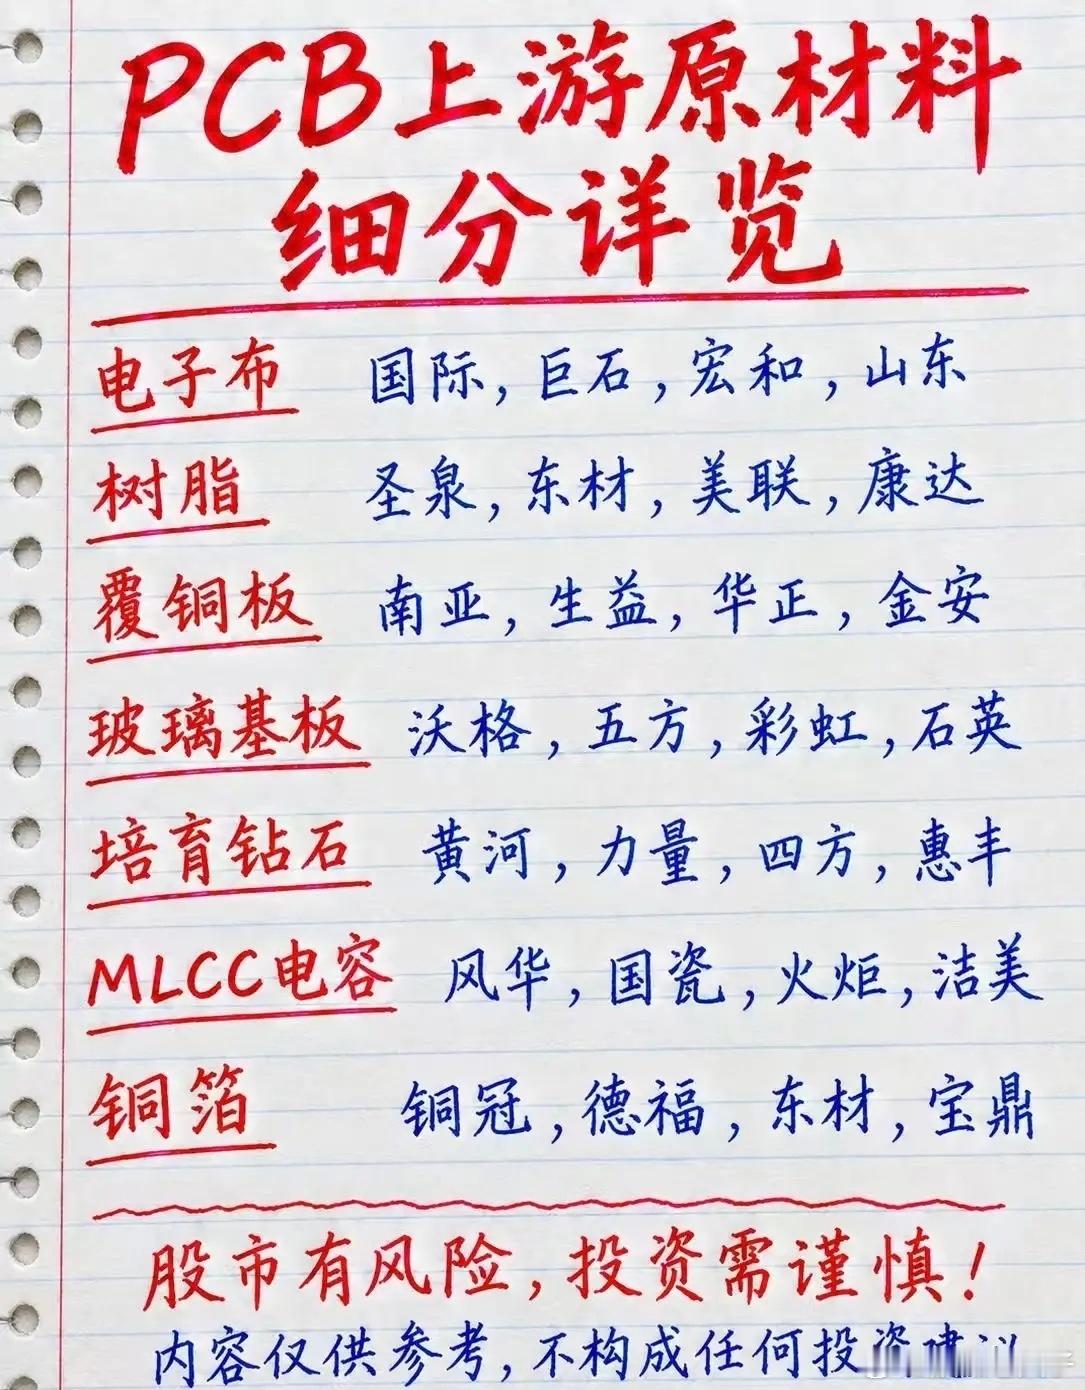 PCB上游原材料
细分详览
电子布 国际,巨石,宏和,山东
树脂 圣泉,东材,美联,康达
覆铜板 南亚,生益,华正,金安
玻璃基板 沃格,五方,彩虹,石英
培育钻石 黄河,力量,四方,惠丰
MLCC电容 风华,国瓷,火炬,洁美
铜箔 铜冠,德福,东材,宝鼎
股市有风险,投资需谨慎!
内容仅供参考,不构成任何投资建议